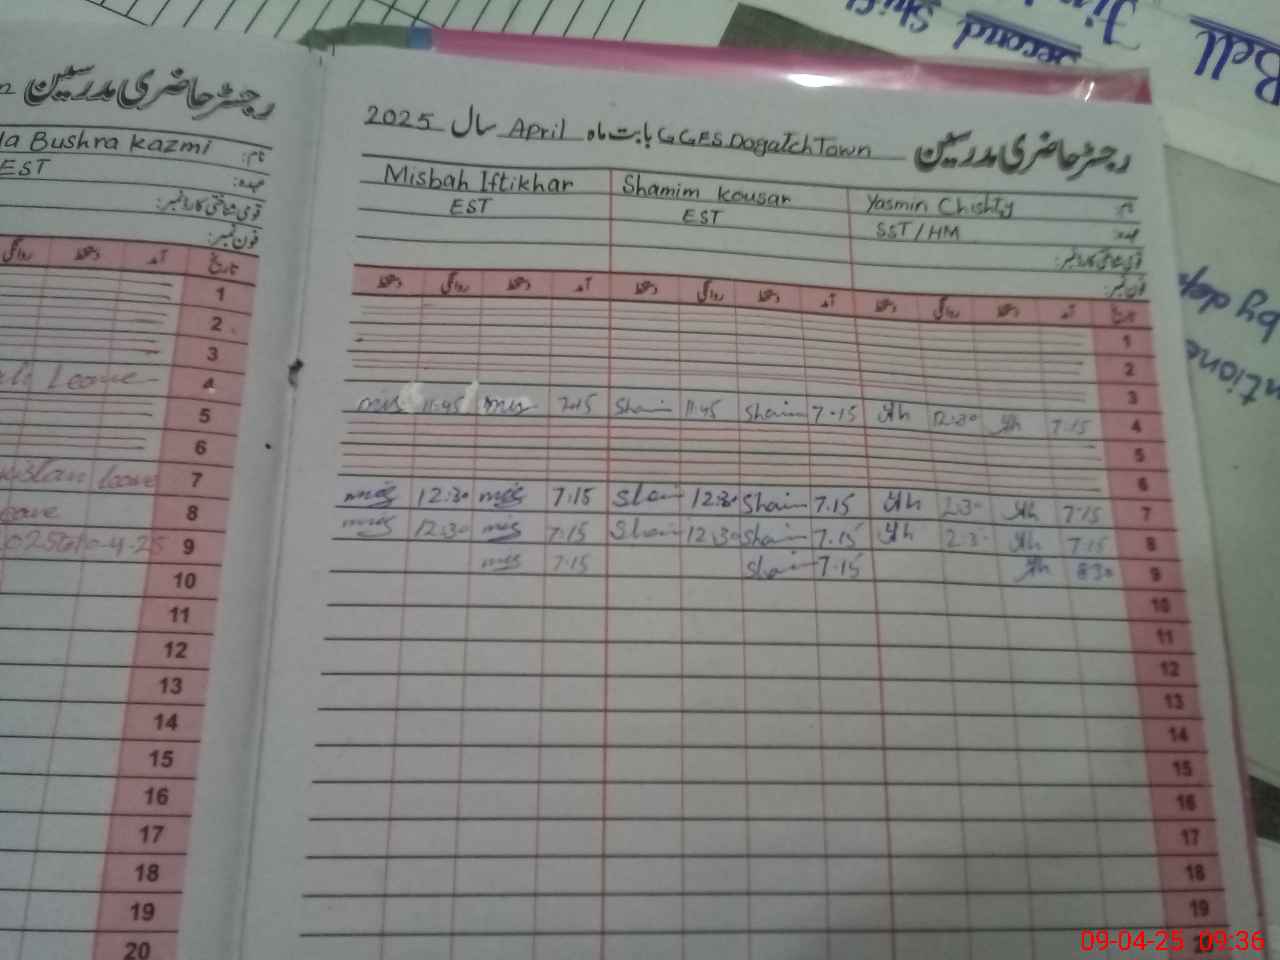 Bell
Second Shift
by dep
رجسٹر حاضری مدرسین
Bushra Kazmi نام:
EST عہدہ:
قومی شناختی کارڈ نمبر:
فون نمبر:
روانگی دستخط آمد تاریخ
1
2
3
Leave 4
5
6
leave 7
8
9
10
11
12
13
14
15
16
17
18
19
20
رجسٹر حاضری مدرسین GGES Dogatch Town بابت ماہ April سال 2025
Misbah Iftikhar Shamim Kousar Yasmin Chishty نام
EST EST SST/HM عہدہ
قومی شناختی کارڈ نمبر:
فون نمبر:
دستخط روانگی دستخط آمد دستخط روانگی دستخط آمد دستخط روانگی دستخط آمد تاریخ
1
2
3
mis 11:45 mis 7:15 Sham 11:45 Sham 7:15 12:30 7:15 4
5
6
mis 12:30 mis 7:15 Sham 12:30 Sham 7:15 2:30 7:15 7
mis 12:30 mis 7:15 Sham 12:30 Sham 7:15 2:30 7:15 8
mis 7:15 Sham 7:15 8:30 9
10
11
12
13
14
15
16
17
18
19
09-04-25 09:36